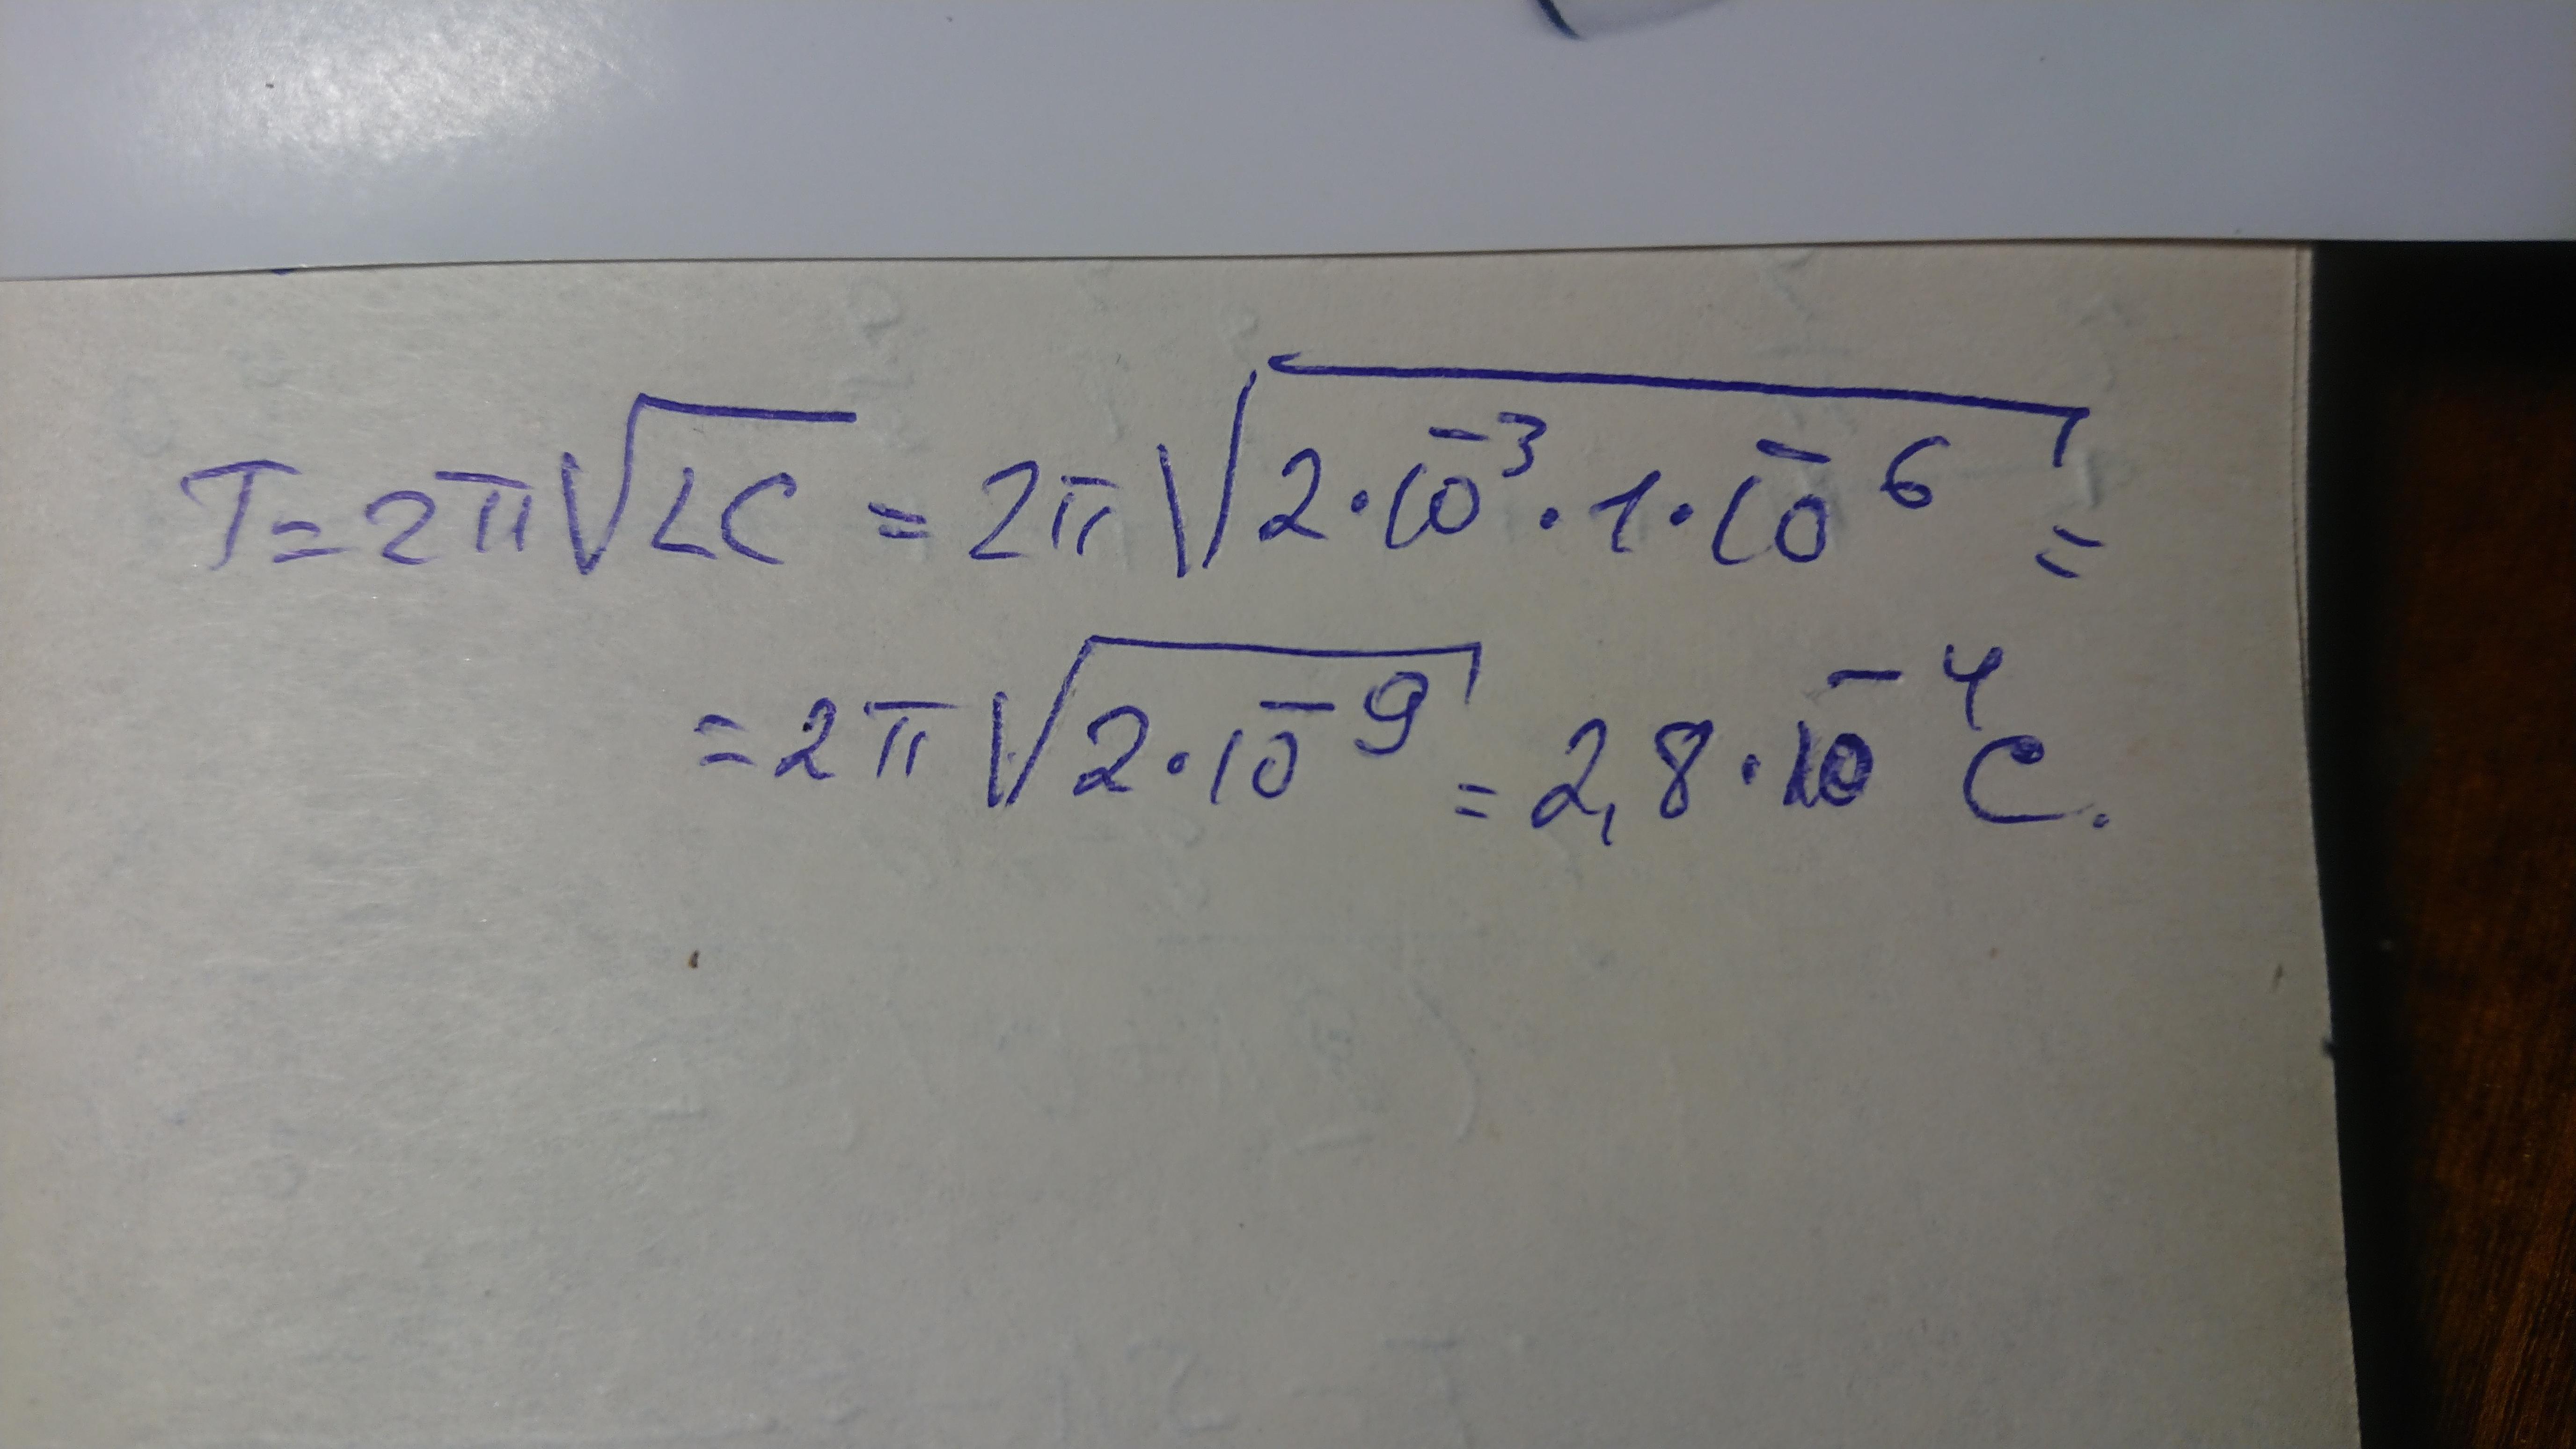 T=2π√LC = 2π√2·10⁻³·1·10⁻⁶ =
=2π√2·10⁻⁹ = 2,8·10⁻⁴ с.